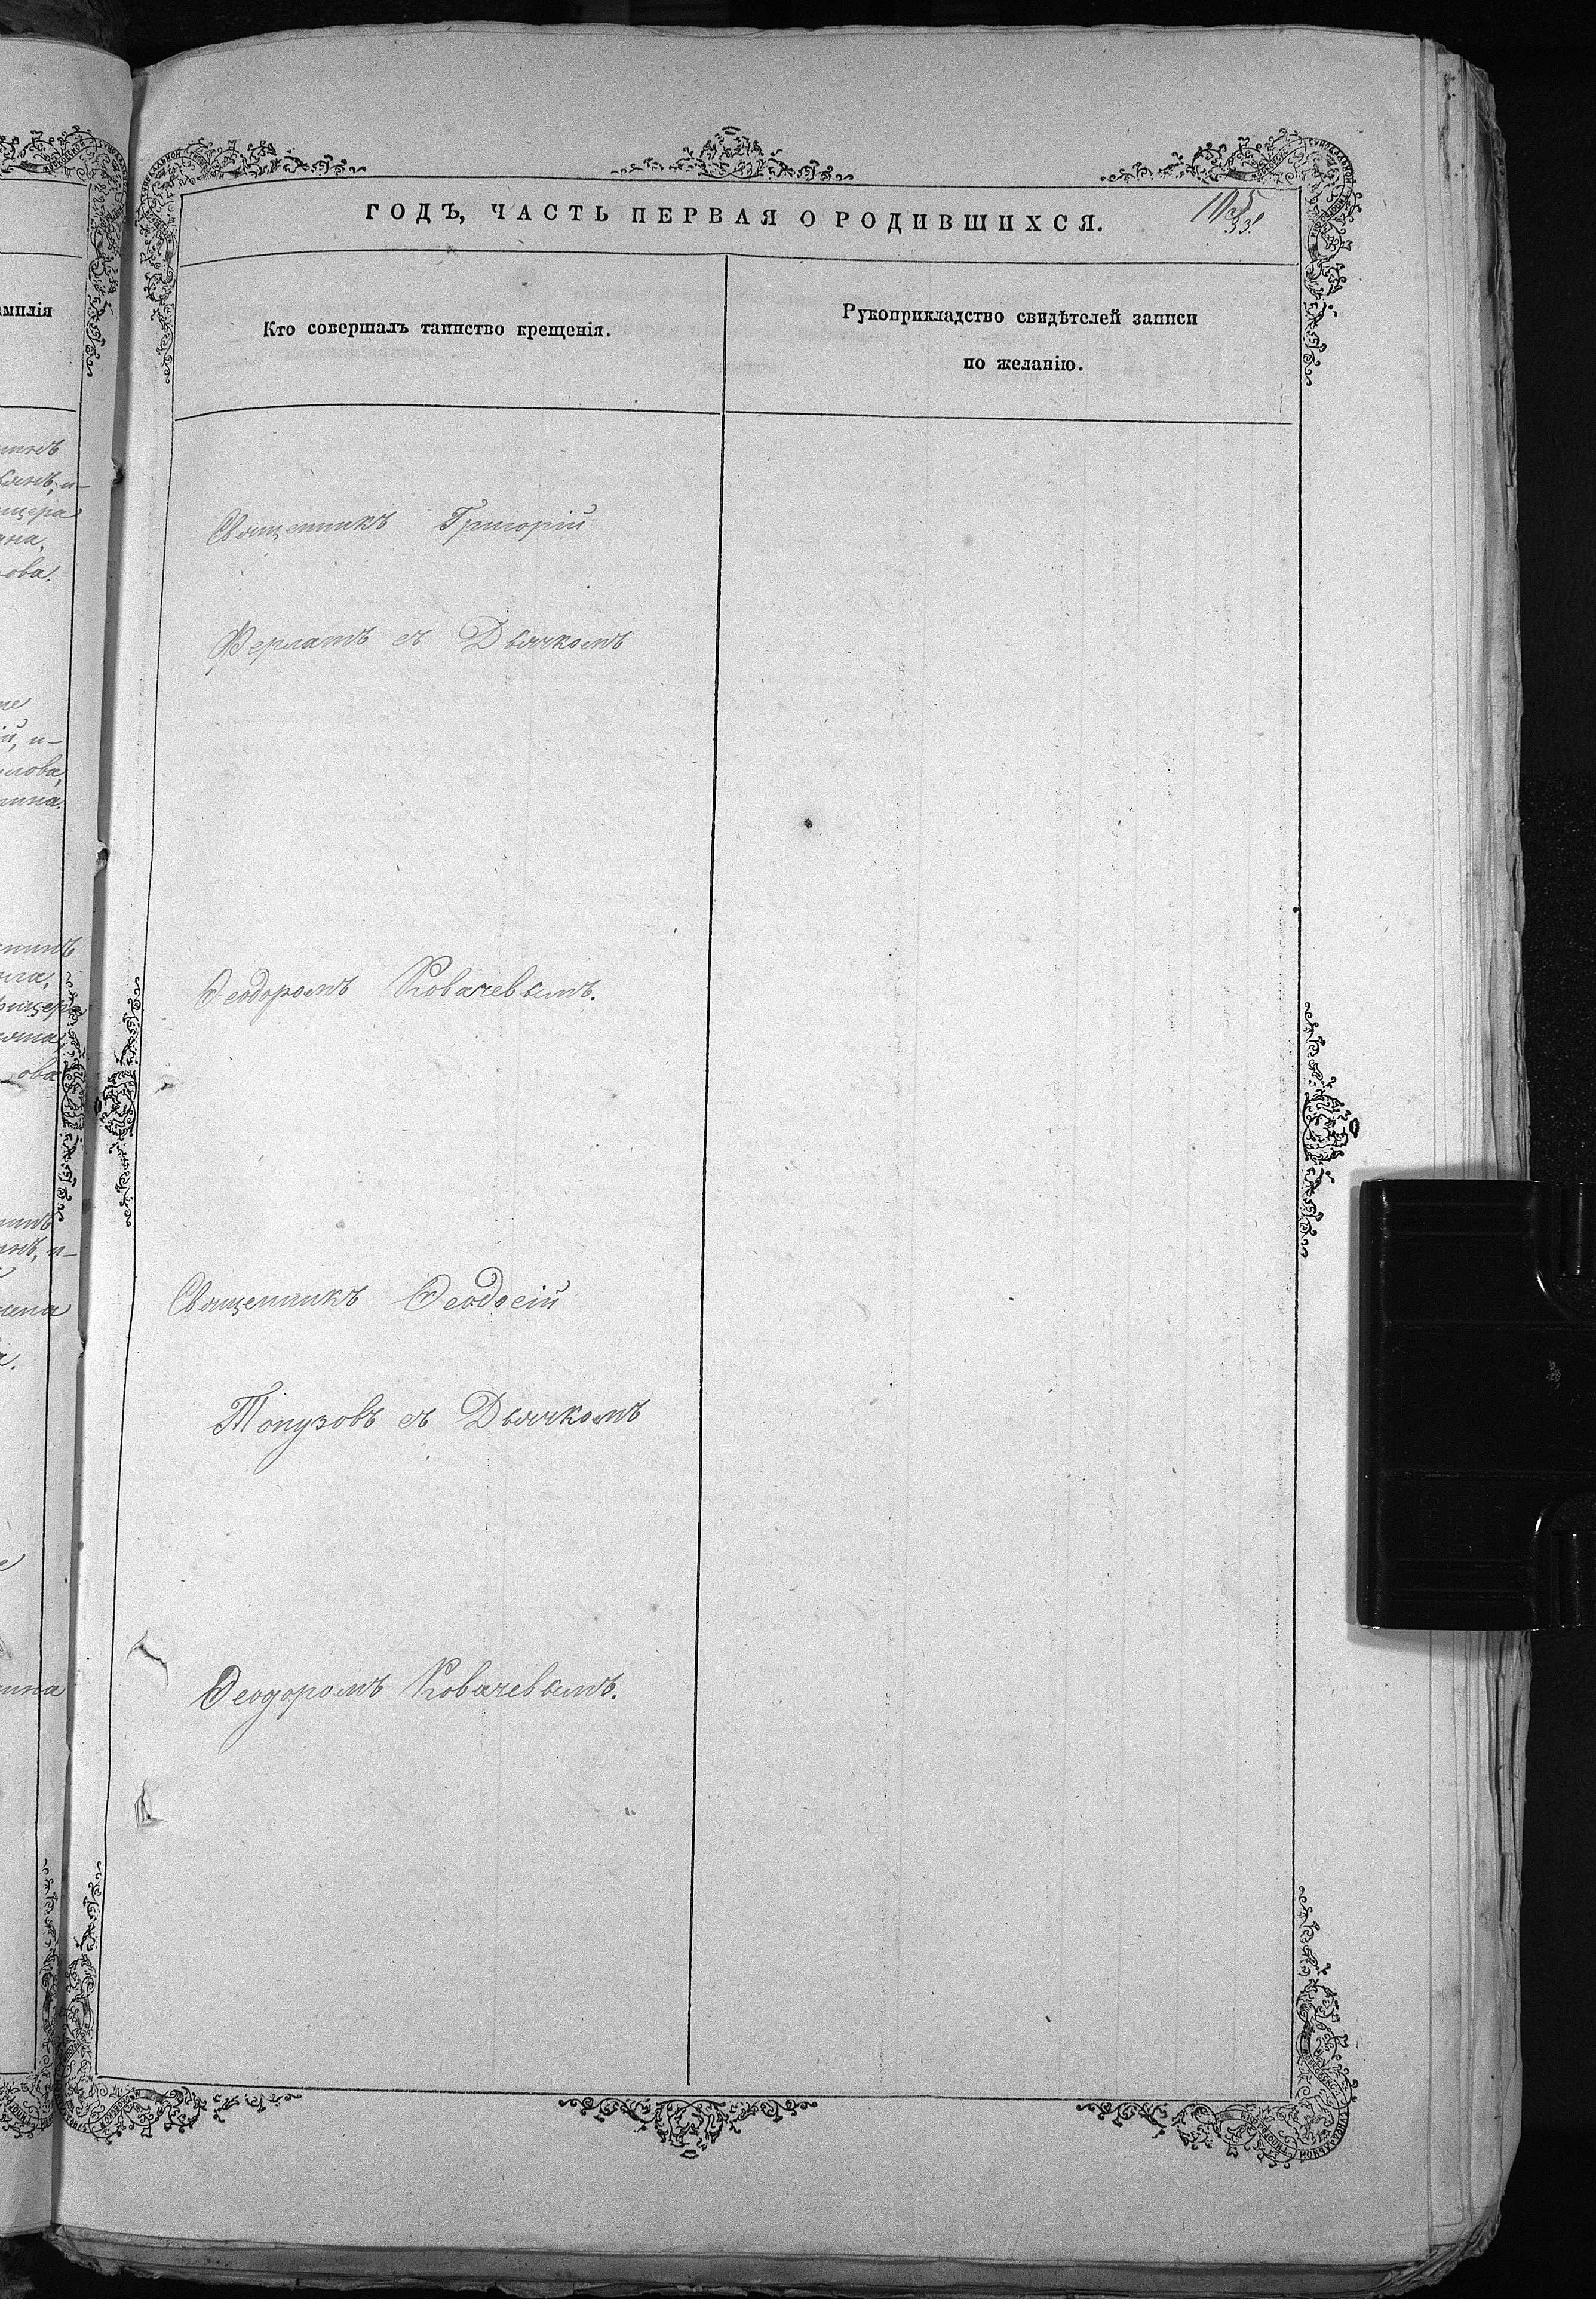 ГОДЪ, ЧАСТЬ ПЕРВАЯ О РОДИВШИХСЯ.
Кто совершалъ таинство крещенія.
Рукоприкладство свидѣтелей записи
по желанію.
Священникъ Григорій
Ферлатъ съ Дьячкомъ
Ѳеодоромъ Ковачевымъ.
Священникъ Ѳеодосій
Топузовъ съ Дьячкомъ
Ѳеодоромъ Ковачевымъ.